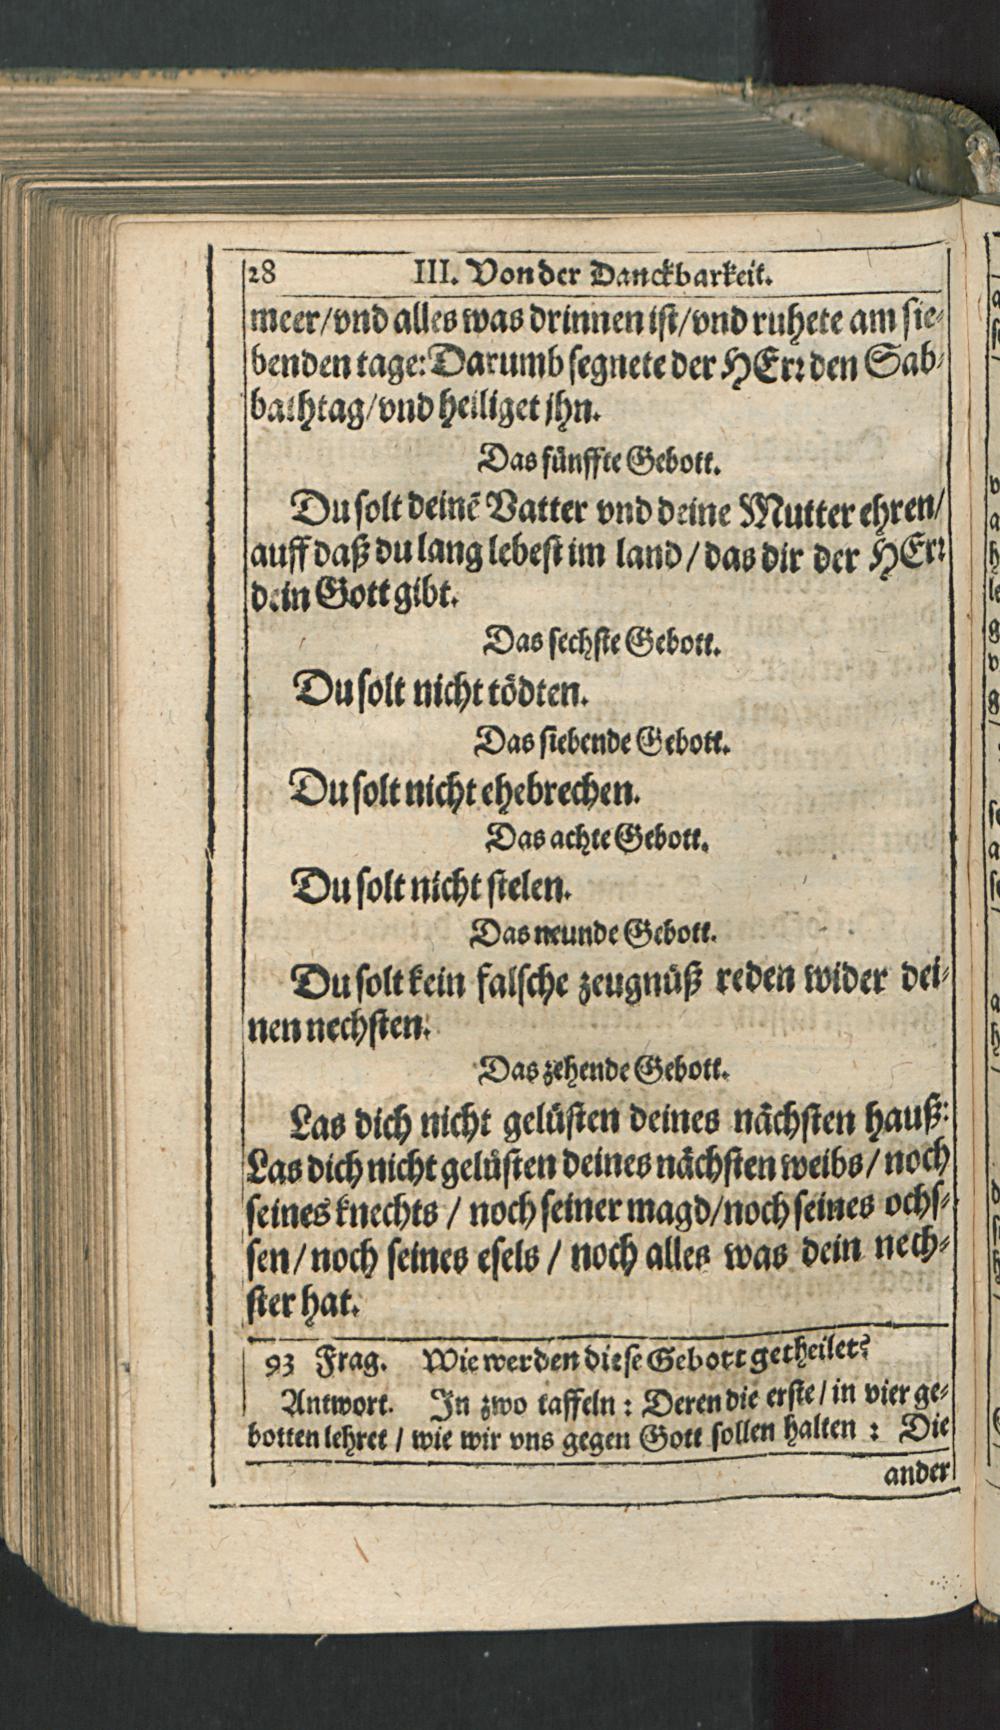 28 III. Von der Danckbarkeit.
meer/vnd alles was drinnen ist/vnd ruhete am sie-
benden tage: Darumb segnete der HErr den Sab-
bathtag/vnd heiliget jhn.
Das fünffte Gebott.
Du solt deinē Vatter vnd deine Mutter ehren/
auff daß du lang lebest im land / das dir der HErr
dein Gott gibt.
Das sechste Gebott.
Du solt nicht tödten.
Das siebende Gebott.
Du solt nicht ehebrechen.
Das achte Gebott.
Du solt nicht stelen.
Das neunde Gebott.
Du solt kein falsche zeugnüß reden wider dei-
nen nechsten.
Das zehende Gebott.
Las dich nicht gelüsten deines nächsten hauß:
Las dich nicht gelüsten deines nächsten weibs / noch
seines knechts / noch seiner magd/noch seines ochs-
sen / noch seines esels / noch alles was dein nech-
ster hat.
93 Frag. Wie werden diese Gebott getheilet?
Antwort. In zwo taffeln : Deren die erste / in vier ge-
botten lehret / wie wir vns gegen Gott sollen halten : Die
ander